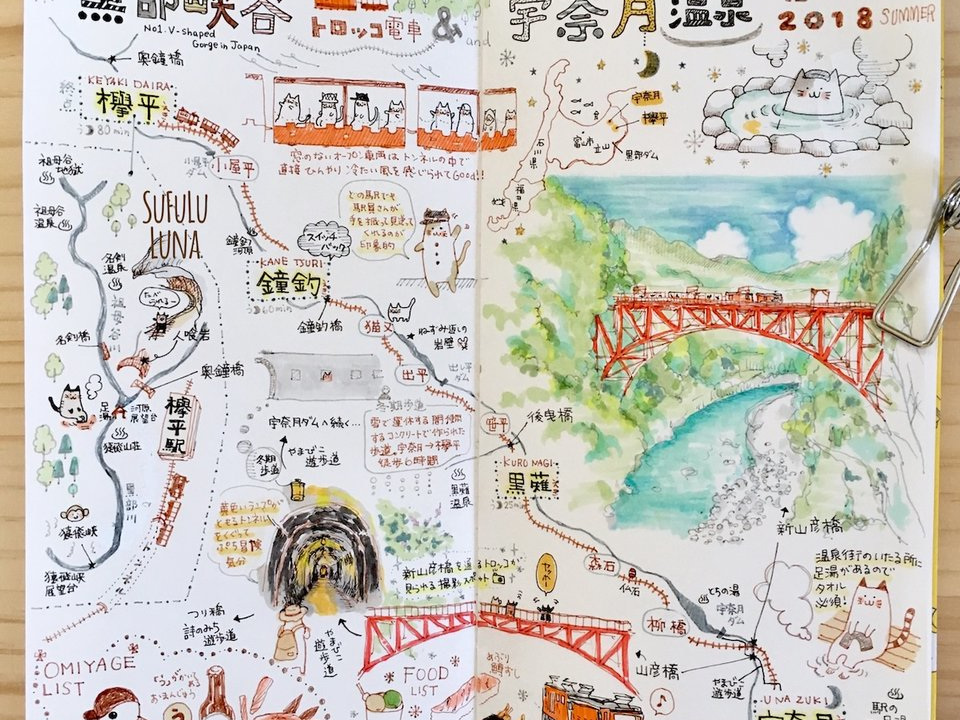 黒部峡谷
トロッコ電車 &
and
No.1. V-shaped
Gorge in Japan
宇奈月温泉
2018 SUMMER
奥鐘橋
終点
KEYAKI DAIRA
欅平
80 min
小屋平
ダム
小屋平
窓のないオープン車両はトンネルの中で
直接ひんやり冷たい風を感じられてGood!!
宇奈月
欅平
富山市
立山
黒部ダム
石川県
福井県
祖母谷
地獄
祖母谷
温泉
SUFULU
LUNA
鐘釣
河原
スイッチ
バック
どの駅でも
駅員さんが
手を振って見送って
くれるのが
印象的
KANE TSURI
鐘釣
60min
鐘釣橋
猫又
ねずみ返しの
岩壁
名剣
温泉
祖母谷川
名剣橋
人喰岩
奥鐘橋
出平
出し平
ダム
足湯
河原
展望台
欅平駅
猿飛山荘
冬期歩道
雪で運休する間使用
するコンクリートで作られた
歩道。宇奈月→欅平
徒歩6時間
宇奈月ダムへ続く…
冬期
歩道
やまびこ
遊歩道
笹平
後曳橋
KURO NAGI
黒薙
25min
黒薙
温泉
黒部川
猿飛峡
猿飛峡
展望台
黄色いランプが
ともるトンネル
をくぐって
ぷち冒険
気分
新山彦橋
新山彦橋を通るトロッコが
見られる撮影スポット
ヤッホー
森石
仏石
とちの湯
宇奈月
ダム
柳橋
温泉街のいたる所に
足湯があるので
タオル
必須!
つり橋
詩のみち
遊歩道
やまびこ
遊歩道
山彦橋
やまびこ
遊歩道
OMIYAGE
LIST
FOOD
LIST
UNAZUKI
宇奈月
駅の
足湯